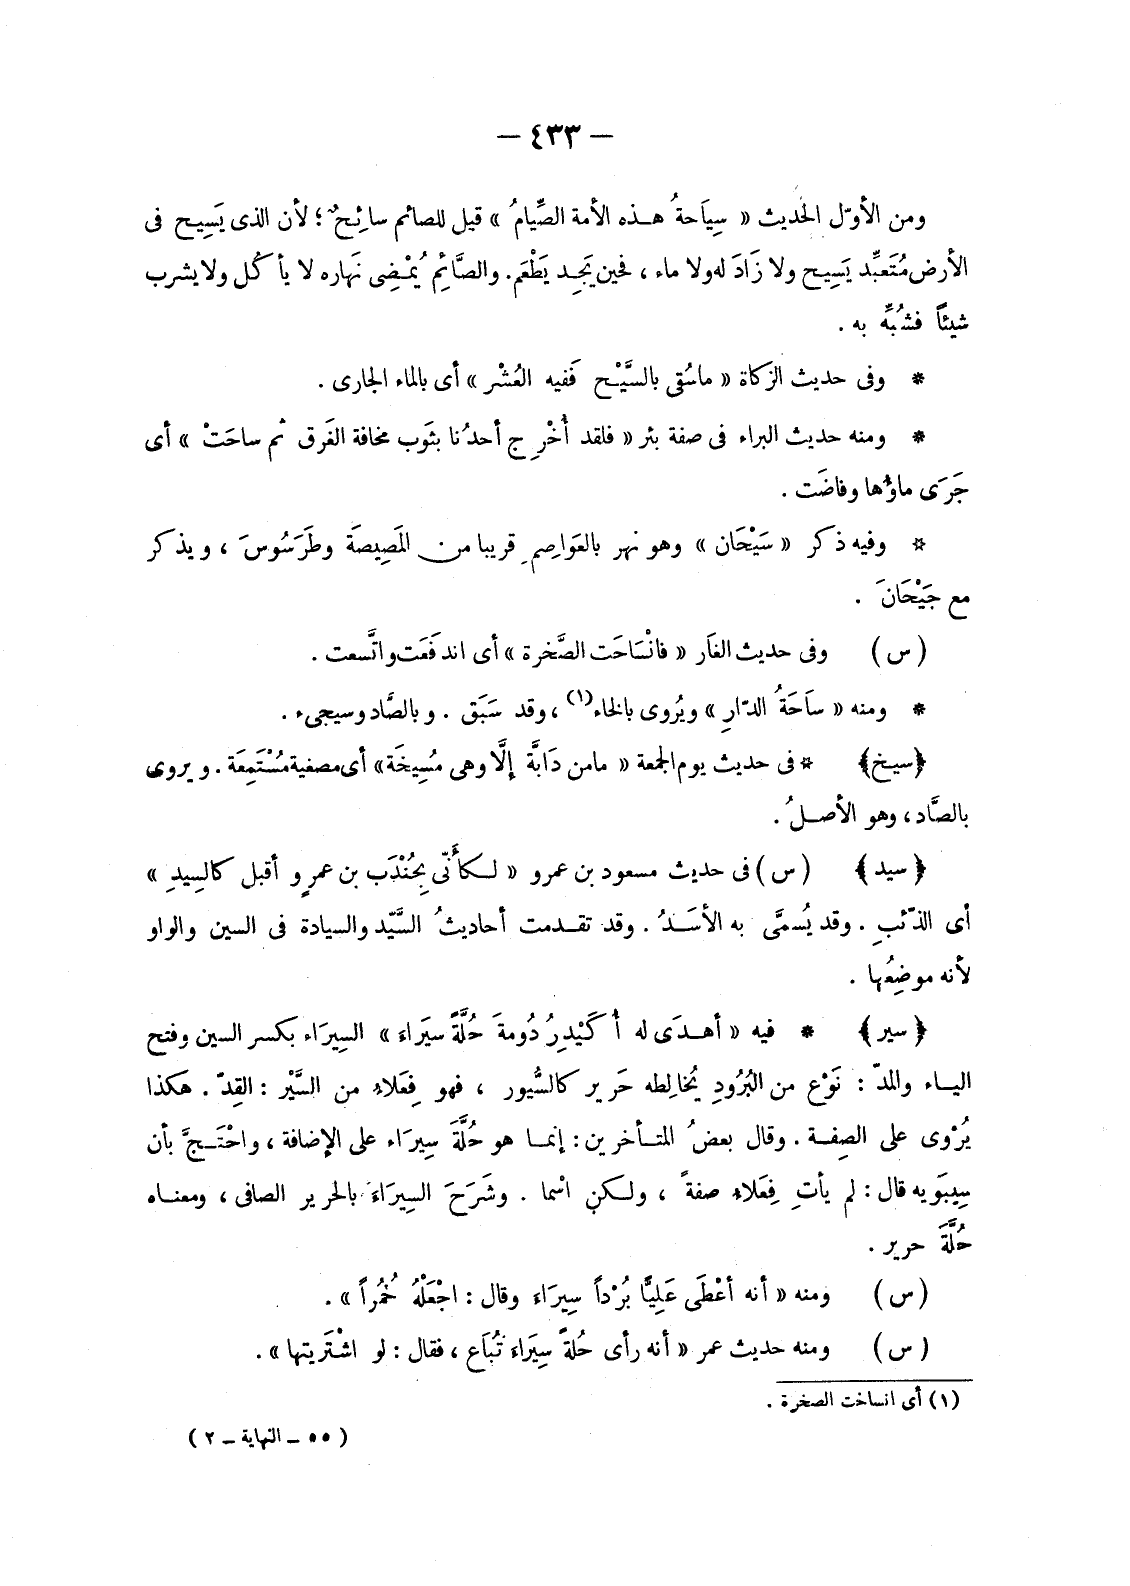 — ٤٣٣ —
ومن الأوّل الحديث « سِيَاحةُ هذه الأمة الصِّيامُ » قيل للصائم سائِحٌ ؛ لأن الذى يَسِيح فى
الأرض مُتَعبِّد يَسِيح ولا زَادَ له ولا ماء ، فحين يَجِد يَطْعَم. والصَّائِم يُمْضِى نَهاره لا يأكُل ولا يشرب
شيئاً فشُبِّه به .
* وفى حديث الزكاة « ماسُقى بالسَّيْح فَفيه العُشْر » أى بالماء الجارى .
* ومنه حديث البراء فى صفة بئر « فلقد أُخْرِج أحدُنا بثَوب مخافة الغَرق ثم ساحَتْ » أى
جَرَى ماؤُها وفاضَت .
* وفيه ذكر « سَيْحَان » وهو نهر بالعَواصِمِ قريبا من المَصِيصَة وطَرَسُوسَ ، ويذكر
مع جَيْحَانَ .
( س ) وفى حديث الغَار « فانْسَاحَت الصَّخرة » أى اندفَعَت واتَّسعت .
* ومنه « سَاحَةُ الدّارِ » ويُروى بالخاء (١) ، وقد سَبَق . وبالصَّاد وسيجىء .
﴿ سيخ ﴾ * فى حديث يوم الجمعة « مامن دَابَّة إلَّا وهى مُسِيخَة » أى مصغية مُسْتَمِعَة . ويروى
بالصَّاد ، وهو الأصلُ .
﴿ سيد ﴾ ( س ) فى حديث مسعود بن عمرو « لكأَنّى بِجُنْدَب بن عمرٍو أقبل كالسِيدِ »
أى الذّئبِ . وقد يُسمَّى به الأسَدُ . وقد تقدمت أحاديثُ السَّيّد والسيادة فى السين والواو
لأنه موضِعُها .
﴿ سير ﴾ * فيه « أهدَى له أُكَيْدِرُ دُومةَ حُلَّةً سيَراءَ » السِيرَاء بكسر السين وفتح
الياء والمدّ : نَوْع من البُرُودِ يُخالِطه حَرير كالسُّيور ، فهو فِعَلاءُ من السَّيْر : القِدّ . هكذا
يُرْوى على الصِفة . وقال بعضُ المتأخرين : إنما هو حُلَّةَ سِيرَاء على الإضافة ، واحْتَجَّ بأن
سِيبَويه قال : لم يأتِ فِعَلاءُ صفةً ، ولكن اسْما . وشَرَحَ السِيرَاءَ بالحرير الصافى ، ومعناه
حُلَّةَ حرير .
( س ) ومنه « أنه أعْطَى عَلِيًّا بُرْداً سِيرَاءَ وقال : اجْعَلْهُ خُمُراً » .
( س ) ومنه حديث عمر « أنه رأى حُلةً سِيَراءَ تُبَاع ، فقال : لو اشْتَريتها » .
(١) أى انساخت الصخرة .
( ٥٥ ــ النهاية ــ ٢ )